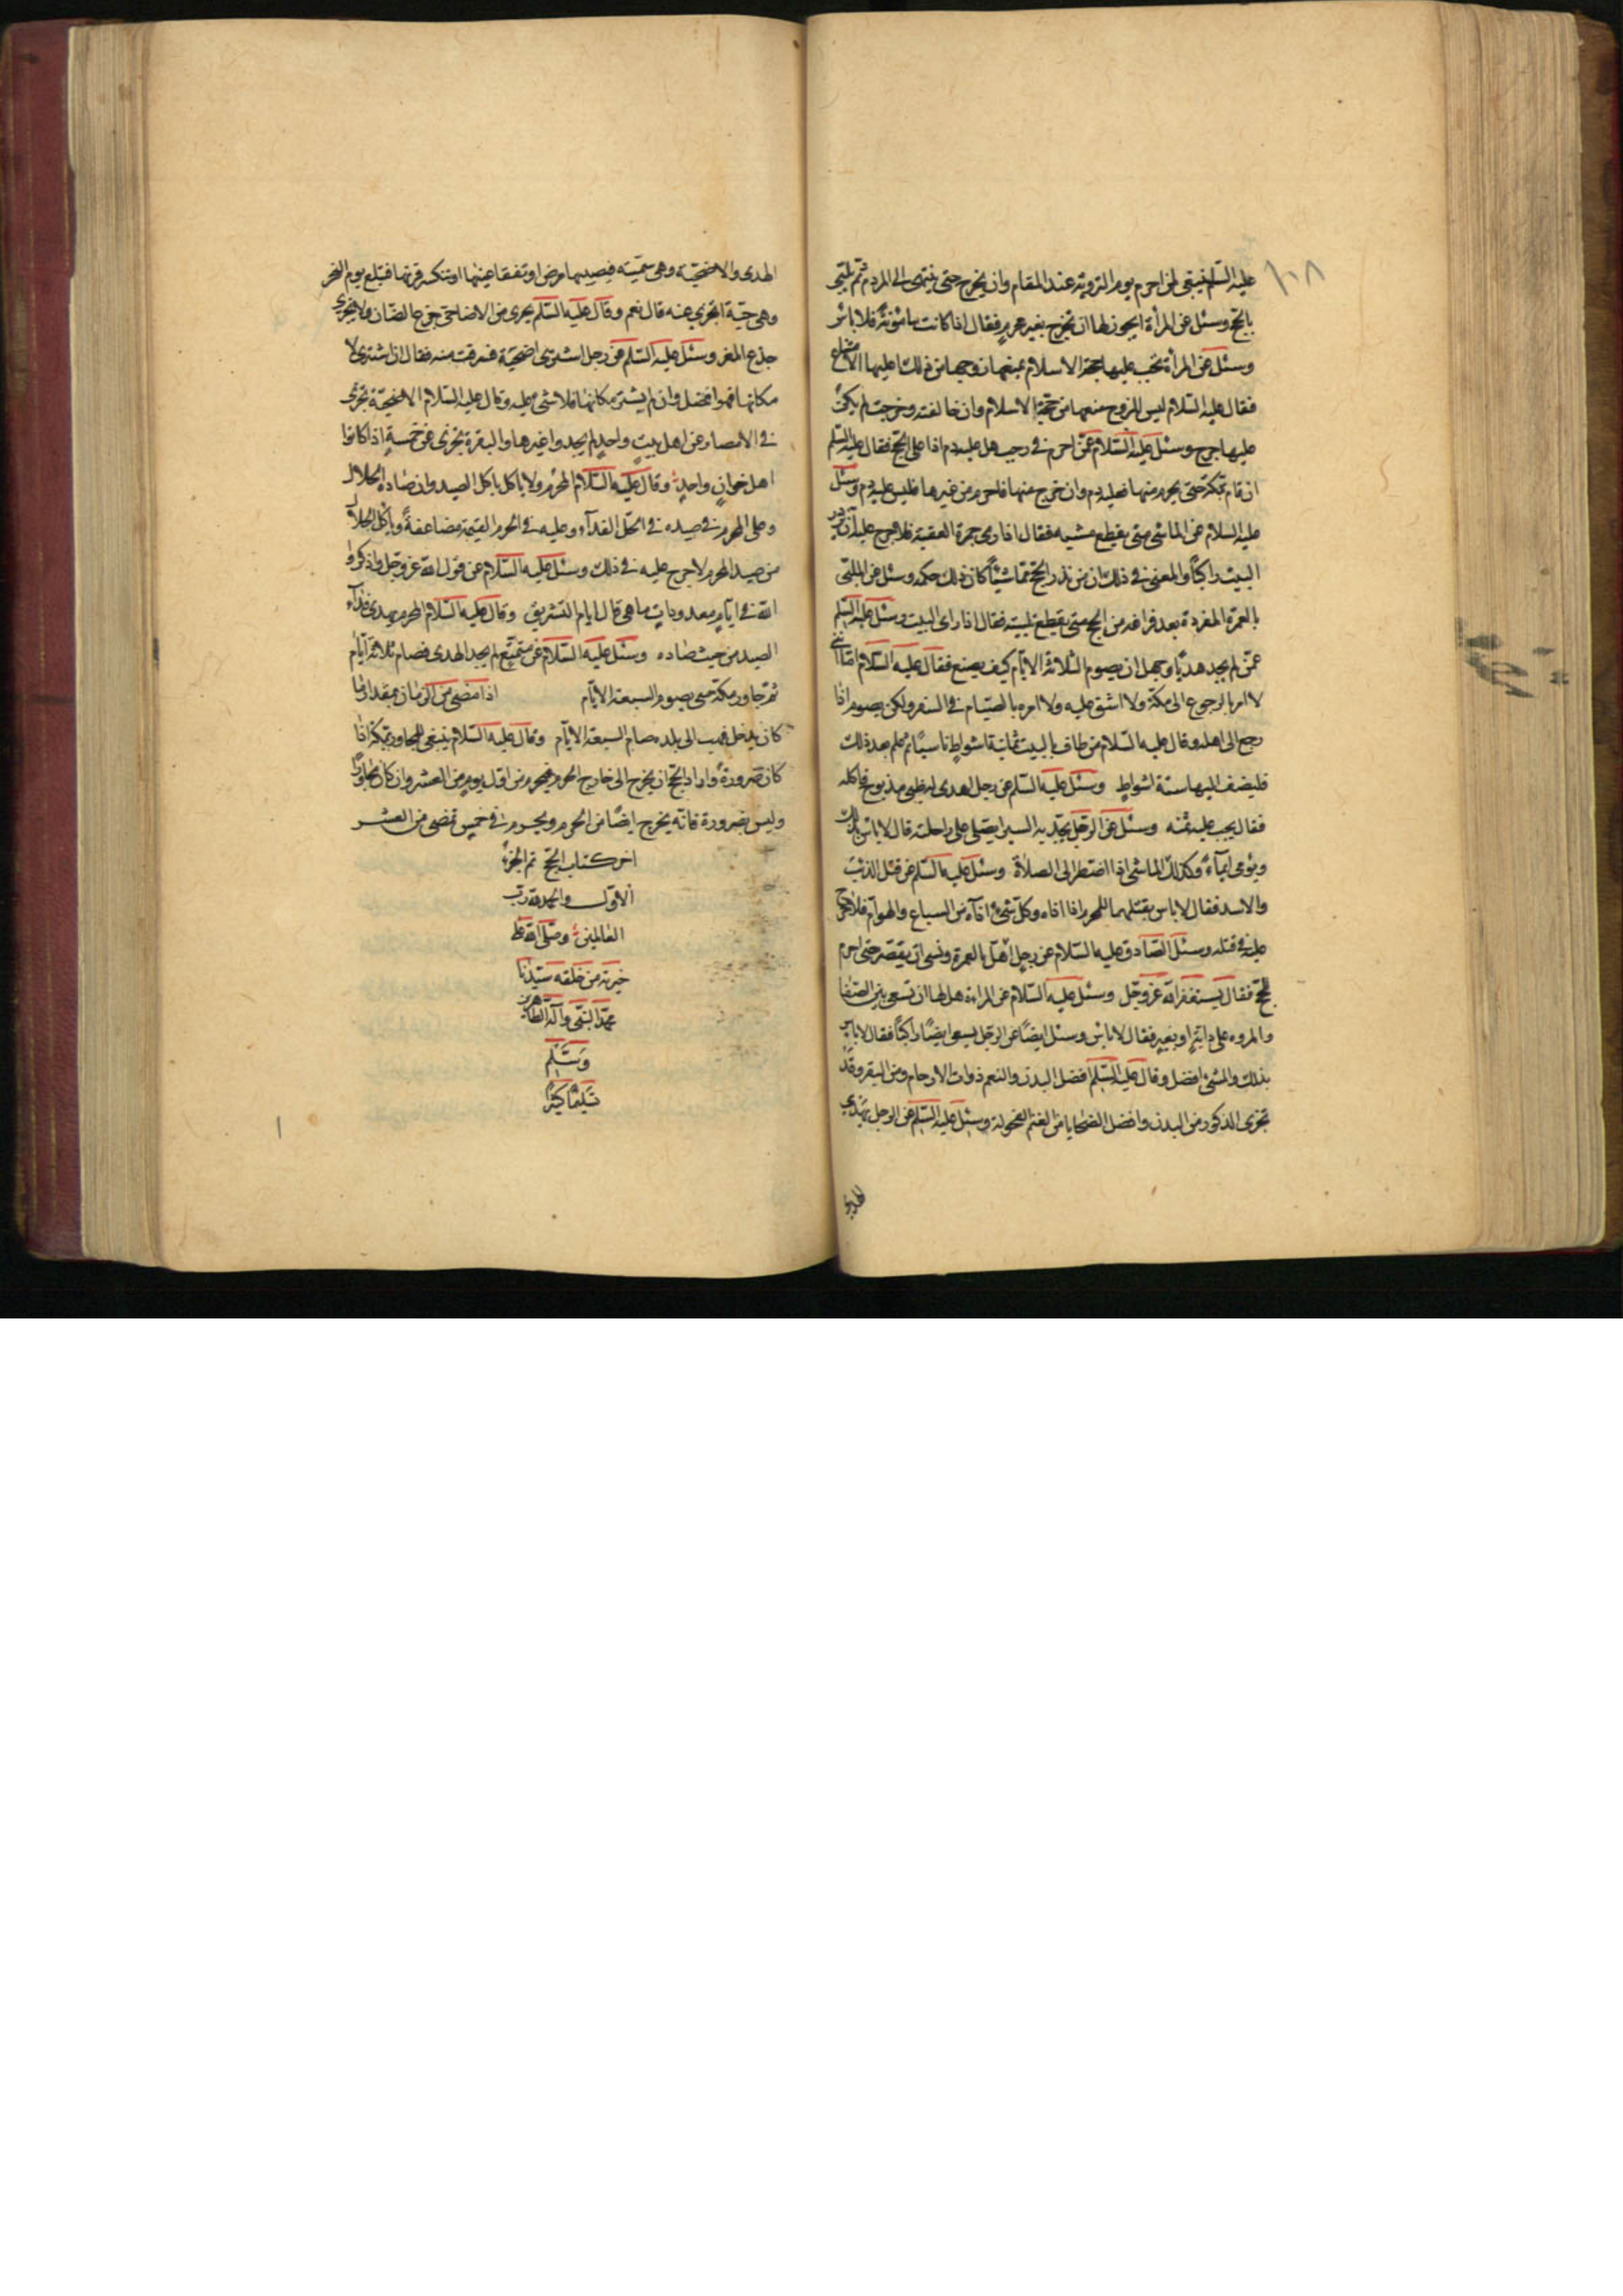 ١٠٨
عليه السلم ينبغى لمن احرم يوم التروية عند المقام وان يخرج حتى ينتهى الى الردم ثم يلبى
بالحج وسئل عن المرأة ايجوز لها ان تخرج بغير محرم فقال اذا كانت مامونة فلا باس
وسئل عن المرأة تجب عليها حجة الاسلام يمنعها زوجها من ذلك اعليها الامتناع
فقال عليه السلام ليس للزوج منعها من حجة الاسلام وان خالفته وخرجت لم يكن
عليها حرج وسئل عليه السلام عمّن احرم فى رجب هل عليه دم اذا على الحج فقال عليه السلم
ان قام بمكة حتى يحرم منها فعليه دم وان خرج منها فاحرم من غيرها فليس عليه دم وسئل
عليه السلام عن الماشى متى يقطع مشيه فقال اذا رمى جمرة العقبة فلا حرج عليه ان يزور
البيت راكبًا والمعنى فى ذلك ان من نذر الحج ماشيًا كان ذلك حكمه وسئل عن الملبّى
بالعمرة المفردة بعد فراغه من الحج متى يقطع تلبيته فقال اذا راى البيت وسئل عليه السلم
عمّن لم يجد هديًا وجهل ان يصوم الثلاثة الايام كيف يصنع فقال عليه السلام امّا اننى
لا امره بالرجوع الى مكة ولا اشق عليه ولا امره بالصيام فى السفر ولكن يصوم اذا
رجع الى اهله وقال عليه السلام من طاف بالبيت ثمانية اشواط ناسيًا ثم علم بعد ذلك
فليضف اليها ستة اشواطٍ وسئل عليه السلم عن رجل اهدى له ظبى مذبوح فاكله
فقال يجب عليه ثمنه وسئل عن الرجل يجدّ به السير ايصلى على راحلته قال لا باس بذلك
ويؤمى ايمآءً وكذلك الماشى اذا اضطر الى الصلاة وسئل عليه السلم عن قتل الذئب
والاسد فقال لا باس بقتلهما للمحرم اذا اراداه وكلّ شىء اراده من السباع والهوام فلا حرج
عليه فى قتله وسئل الصادق عليه السلام عن رجل اهل بالعمرة ونسى ان يقصّر حتى احرم
للحج فقال يستغفر الله عز وجل وسئل عليه السلام عن المراة هل لها ان تسعى بين الصفا
والمروة على دابة او بعير فقال لا باس وسئل ايضًا عن الرجل يسعى ايضًا راكبًا فقال لا باس
بذلك والمشى افضل وقال عليه السلم افضل البدن والنعم ذوات الارحام ومن البقر وقد
تجزى الذكور من البدن وافضل الضحايا من الغنم الفحولة وسئل عليه السلم عن الرجل يهدى
الهدى والاضحيّة وهى سمينة فيصيبها مرض او تفقا عينها او تنكسر قرنها فتبلغ يوم النحر
وهى حيّة اتجزى عنه قال نعم وقال عليه السلم يجزى من الاضاحى جزع الضان ولا يجزى
جذع المعز وسئل عليه السلم عن رجل اشترى اضحيّة فسرقت منه فقال ان اشترى لا
مكانها فهو افضل وان لم يشتر مكانها فلا شى عليه وقال عليه السلام الاضحيّة تجزى
فى الامصار عن اهل بيتٍ واحدٍ لم يجدوا غيرها والبقرة تجزى عن خمسةٍ اذا كانوا
اهل خوانٍ واحدٍ وقال عليه السلام المحرم لا ياكل ياكل الصيد وان صاده الحلال
وعلى المحرم فى صيده فى الحل الفدآء وعليه فى الحرم القيمة مضاعفةً وياكل الحلال
من صيد المحرم لا حرج عليه فى ذلك وسئل عليه السلام عن قول الله عز وجل واذكروا
الله فى ايامٍ معدوداتٍ ما هى قال ايام التشريق وقال عليه السلام المحرم يهدى فدآء
الصيد من حيث صاده وسئل عليه السلام عن متمتّع لم يجد الهدى فصام ثلاثة ايام
ثم جاور مكة متى يصوم السبعة الايام اذا مضى من الزمان بمقدار ما
كان يدخل فيه الى بلده صام السبعة الايام وقال عليه السلام ينبغى للمجاور بمكة اذا
كان صرورةً واراد الحج ان يخرج الى خارج الحرم فيحرم من اول يوم من العشر وان كان مجاورًا
وليس بصرورة فانه يخرج ايضًا من الحرم ويحرم فى خمسٍ تمضى من العشر
اخر كتاب الحج تم الجزء
الاول والحمد لله رب
العالمين وصلى الله على
خيرته من خلقه سيدنا
محمد النبى وآله الطاهرين
وسلم
تسليمًا كثيرًا